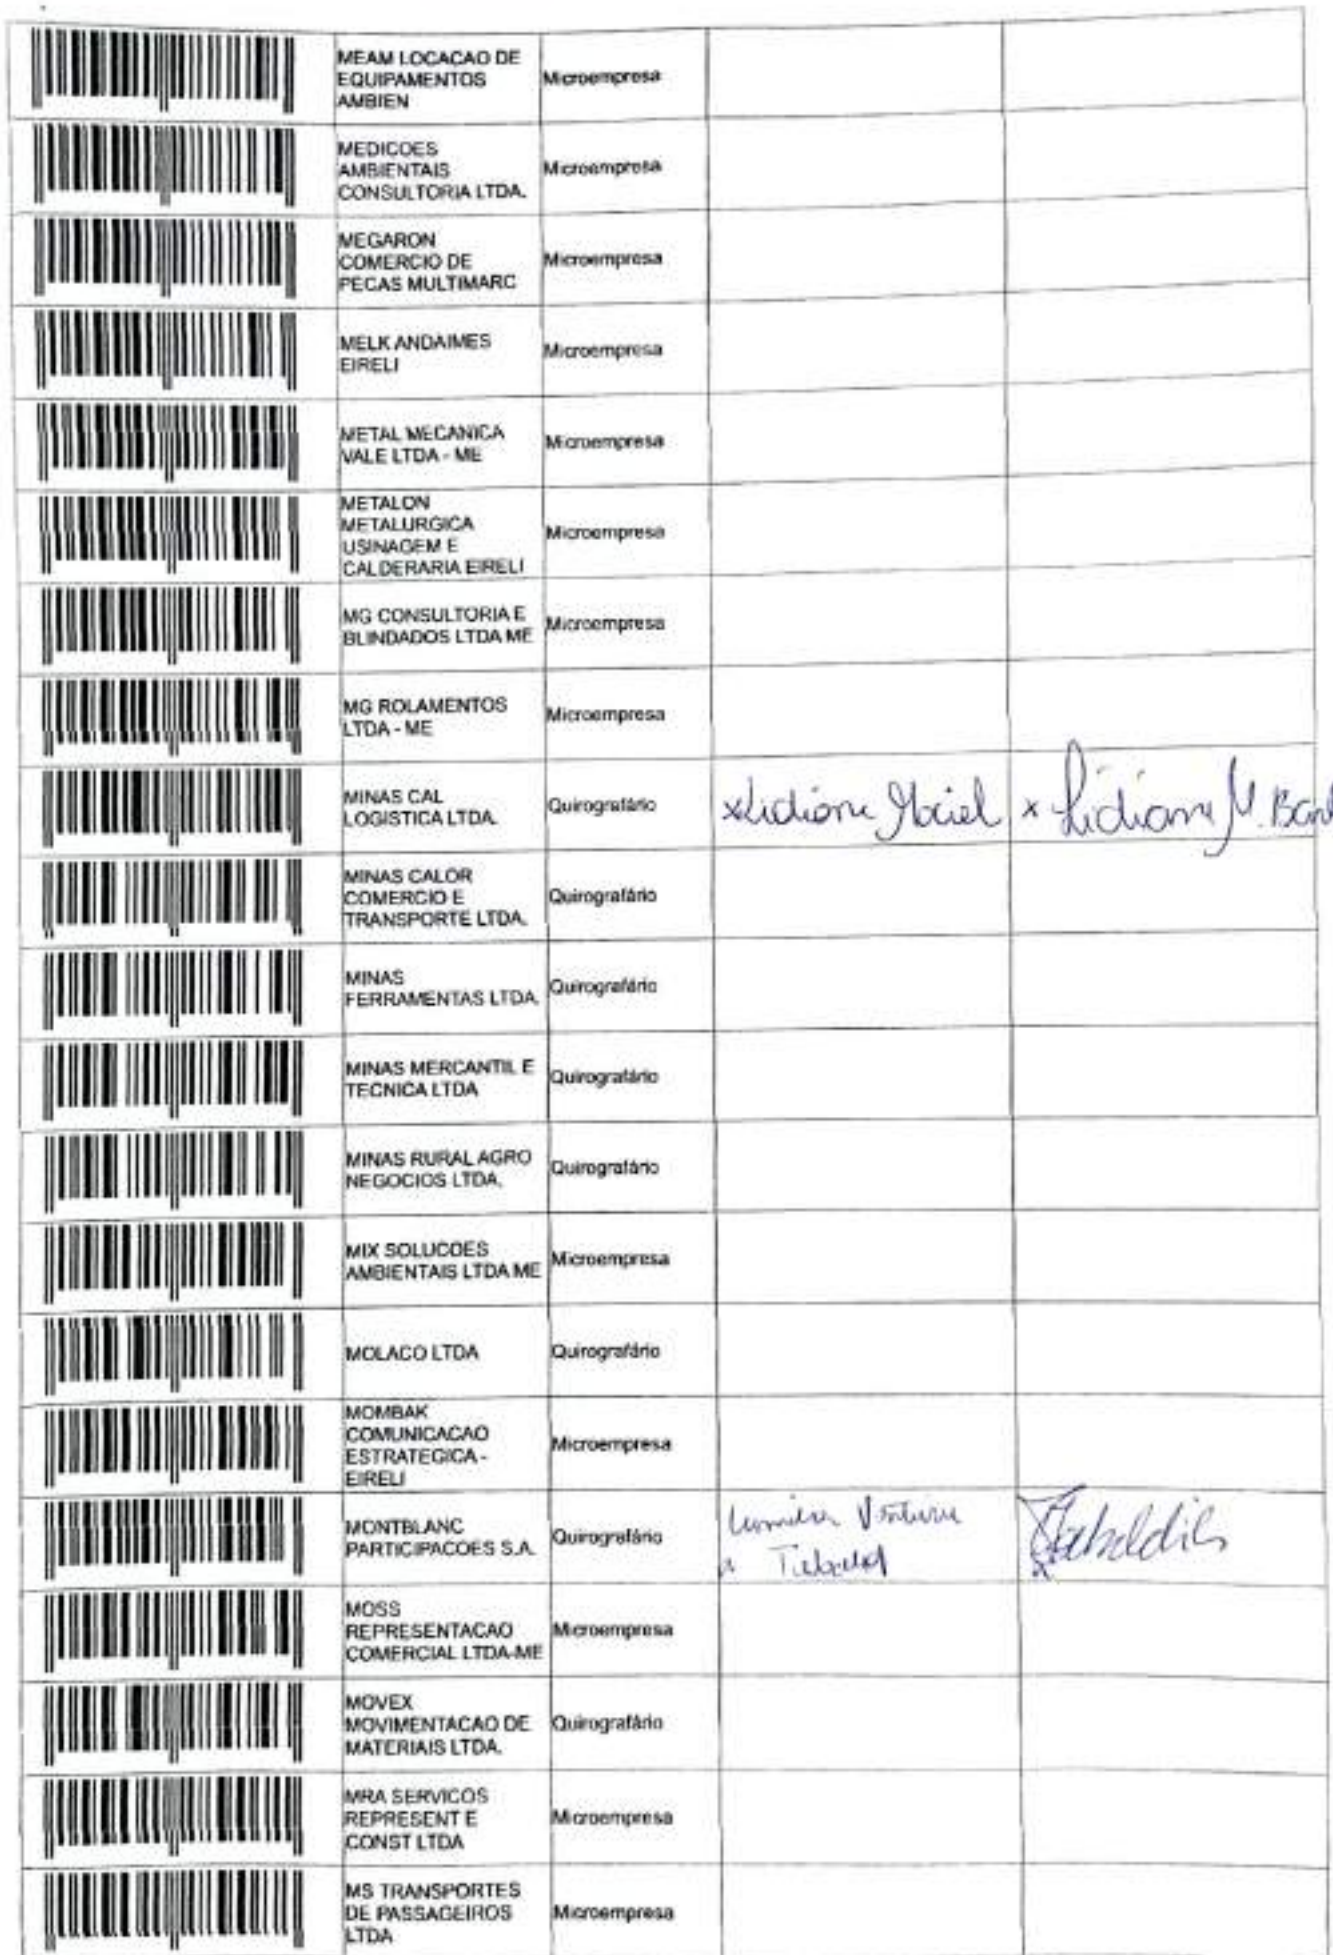 MEAM LOCACAO DE
EQUIPAMENTOS
AMBIEN
Microempresa
MEDICOES
AMBIENTAIS
CONSULTORIA LTDA.
Microempresa
MEGARON
COMERCIO DE
PECAS MULTIMARC
Microempresa
MELK ANDAIMES
EIRELI
Microempresa
METAL MECANICA
VALE LTDA - ME
Microempresa
METALON
METALURGICA
USINAGEM E
CALDERARIA EIRELI
Microempresa
MG CONSULTORIA E
BLINDADOS LTDA ME
Microempresa
MG ROLAMENTOS
LTDA - ME
Microempresa
MINAS CAL
LOGISTICA LTDA.
Quirografário
x Lidiane Maciel
x Lidiane M.
MINAS CALOR
COMERCIO E
TRANSPORTE LTDA.
Quirografário
MINAS
FERRAMENTAS LTDA.
Quirografário
MINAS MERCANTIL E
TECNICA LTDA
Quirografário
MINAS RURAL AGRO
NEGOCIOS LTDA.
Quirografário
MIX SOLUCOES
AMBIENTAIS LTDA ME
Microempresa
MOLACO LTDA
Quirografário
MOMBAK
COMUNICACAO
ESTRATEGICA -
EIRELI
Microempresa
MONTBLANC
PARTICIPACOES S.A.
Quirografário
MOSS
REPRESENTACAO
COMERCIAL LTDA-ME
Microempresa
MOVEX
MOVIMENTACAO DE
MATERIAIS LTDA.
Quirografário
MRA SERVICOS
REPRESENT E
CONST LTDA
Microempresa
MS TRANSPORTES
DE PASSAGEIROS
LTDA
Microempresa